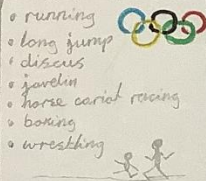 • running
• long jump
• discus
• javelin
• horse cariat racing
• boxing
• wrestling